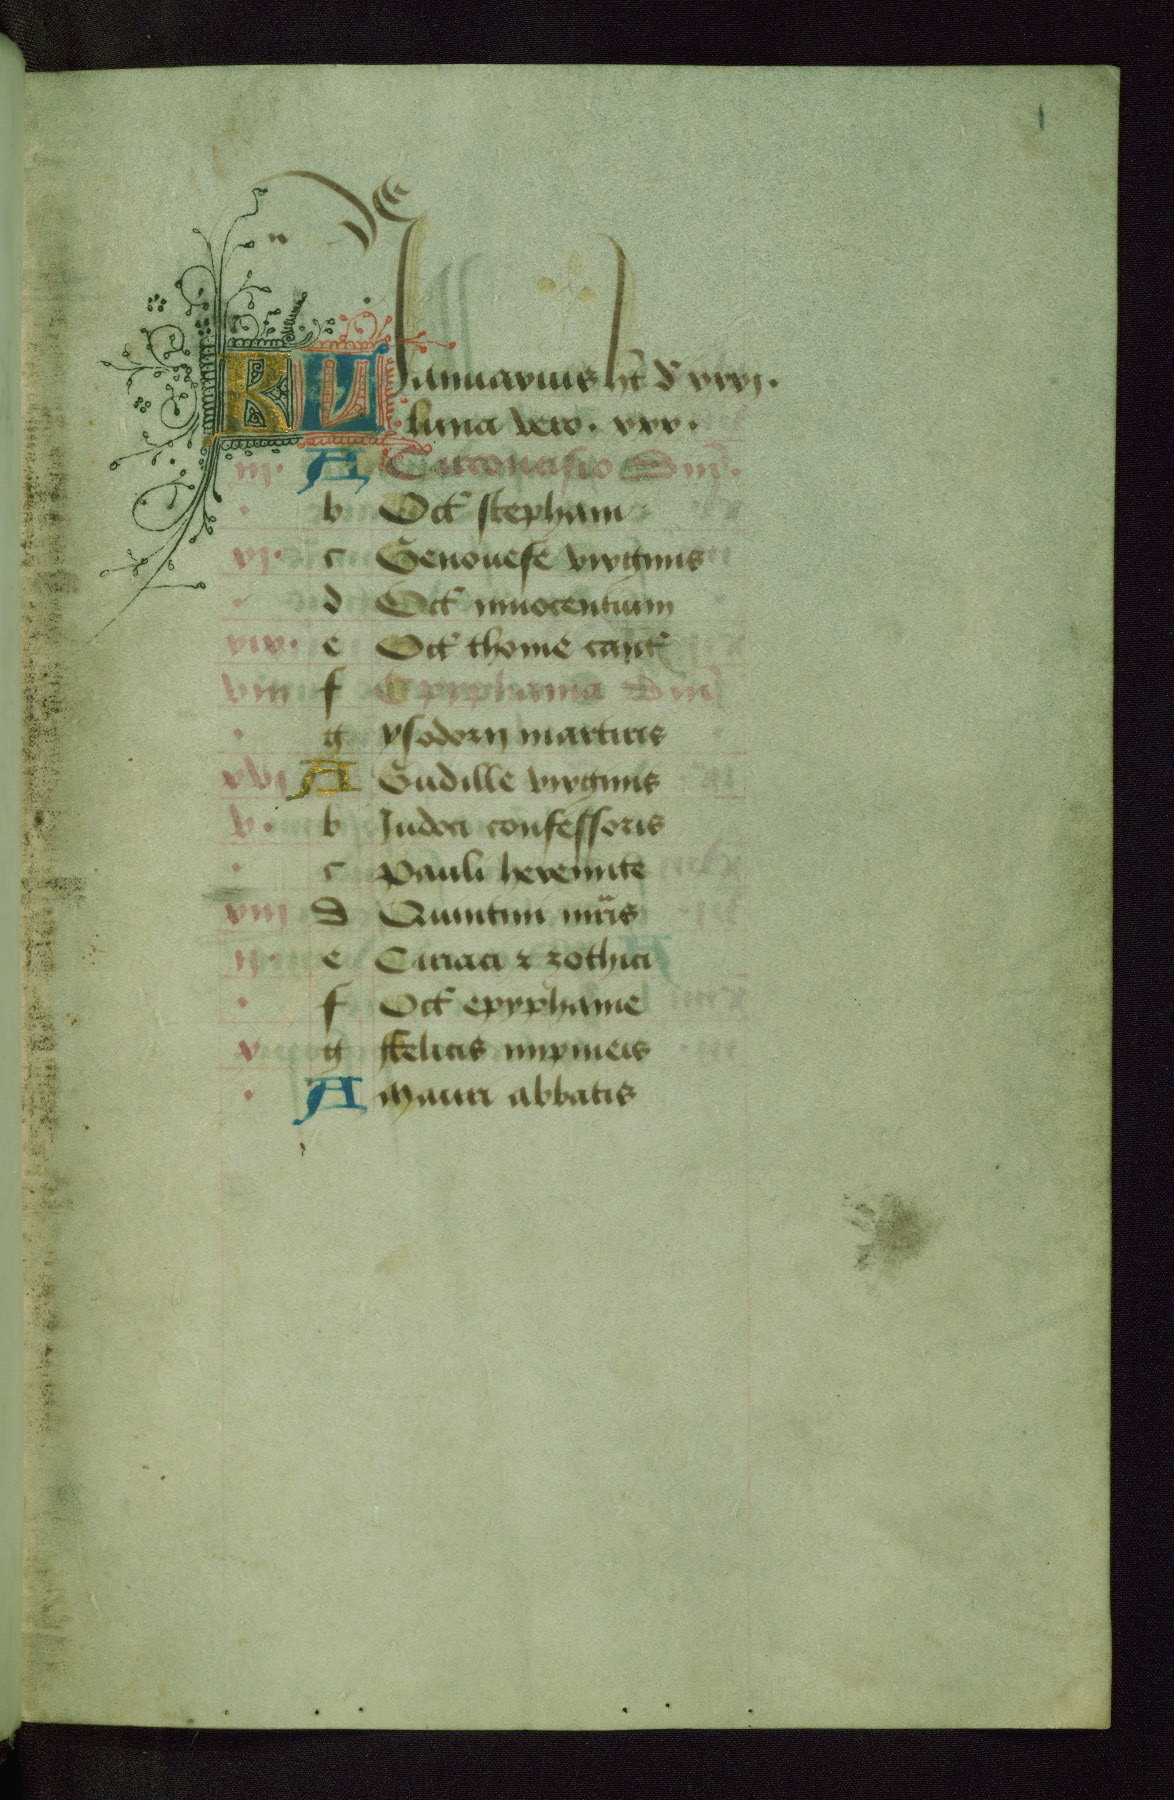 KL Januarius ht̄ d' xxxj.
luna vero. xxx.
iij. A Circoncisio Dm̄.
b Oct' stephani
xj. c Genouefe virginis
d Oct' innocentium
xix. e Oct' thome cant'
viij f Epyphania Dm̄
g ysodorij martiris
xvi A Gudille virginis
v. b Judoci confessoris
c Pauli heremite
xiij d Quintini mr̄is
ij. e Ciriaci ⁊ zothici
f Oct' epyphanie
x g ffelicis inpincis
A Mauri abbatis